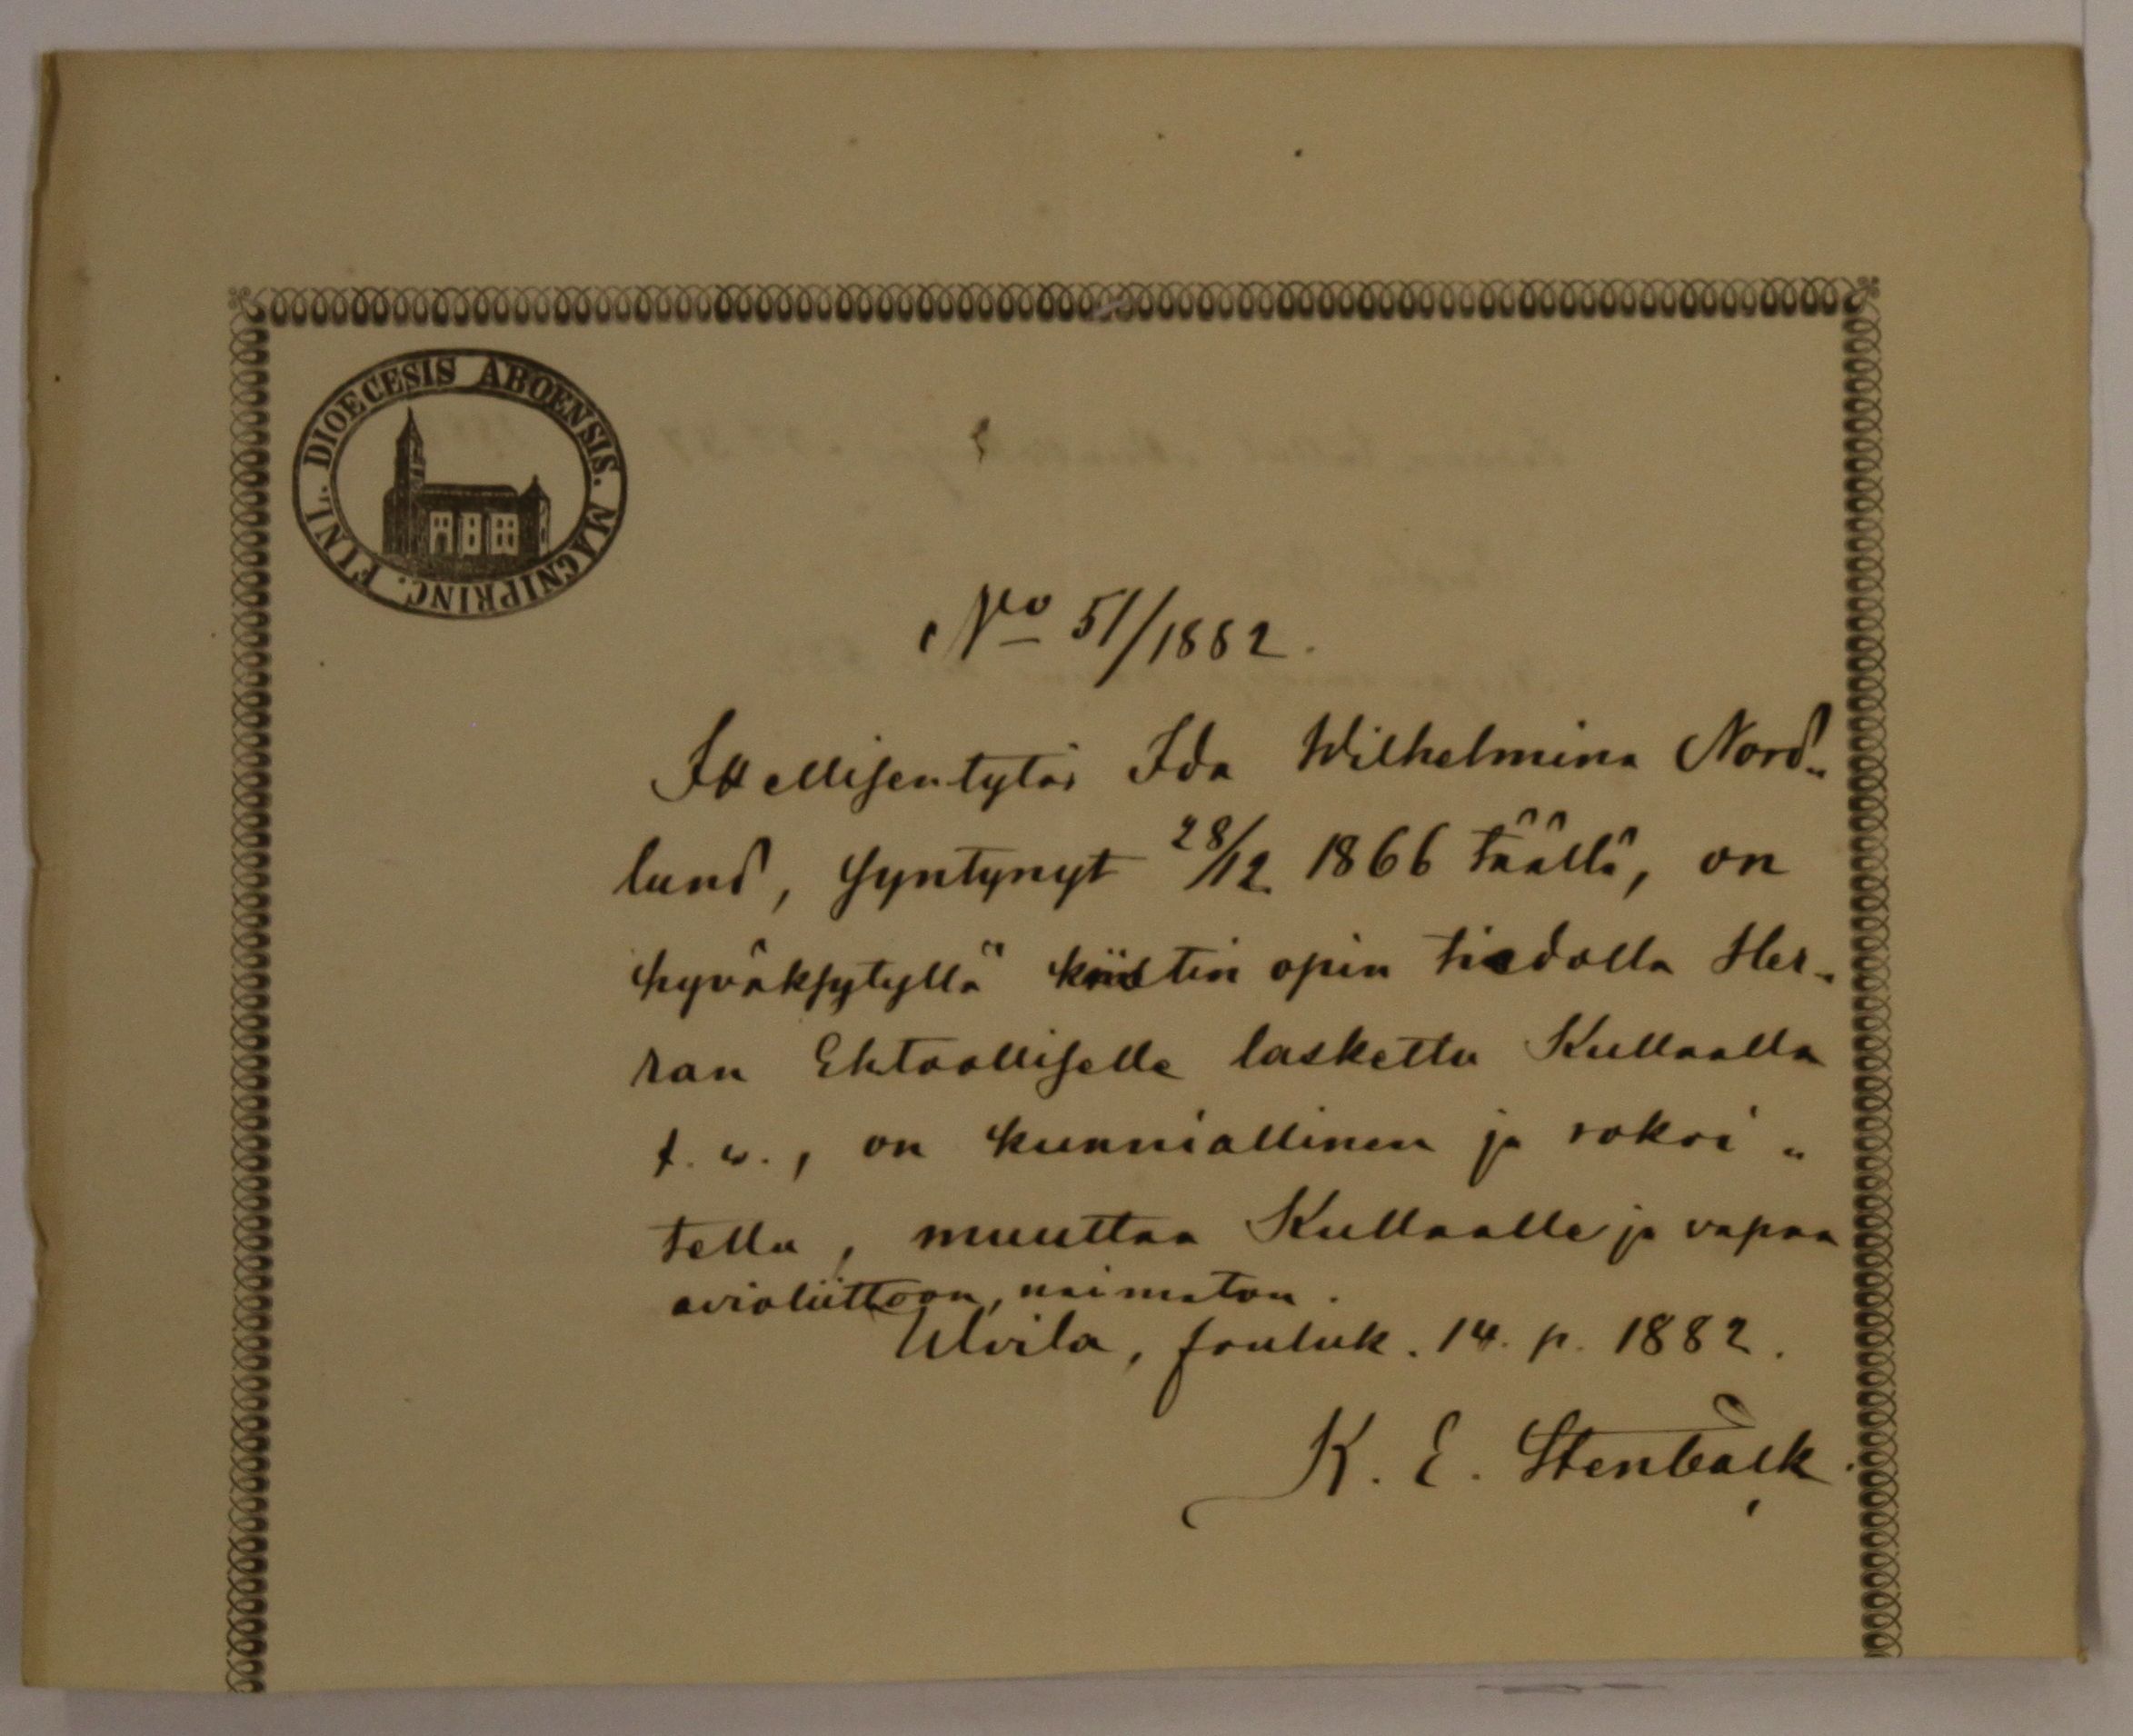 DIOECESIS ABOENSIS. MAGNIPRINC. FINL.
No 51/1882.
Itellisentytär Ida Wilhelmina Nord„
lund, syntynyt 28/12 1866 täällä, on
hyväksytyllä kristin opin tiedolla Her„
ran Ehtoolliselle laskettu Kullaalla
t. w., on kunniallinen ja rokoi„
tettu, muuttaa Kullaalle ja vapaa
avioliittoon, naimaton.
Ulvila, Jouluk. 14. p. 1882.
K. E. Stenbäck.